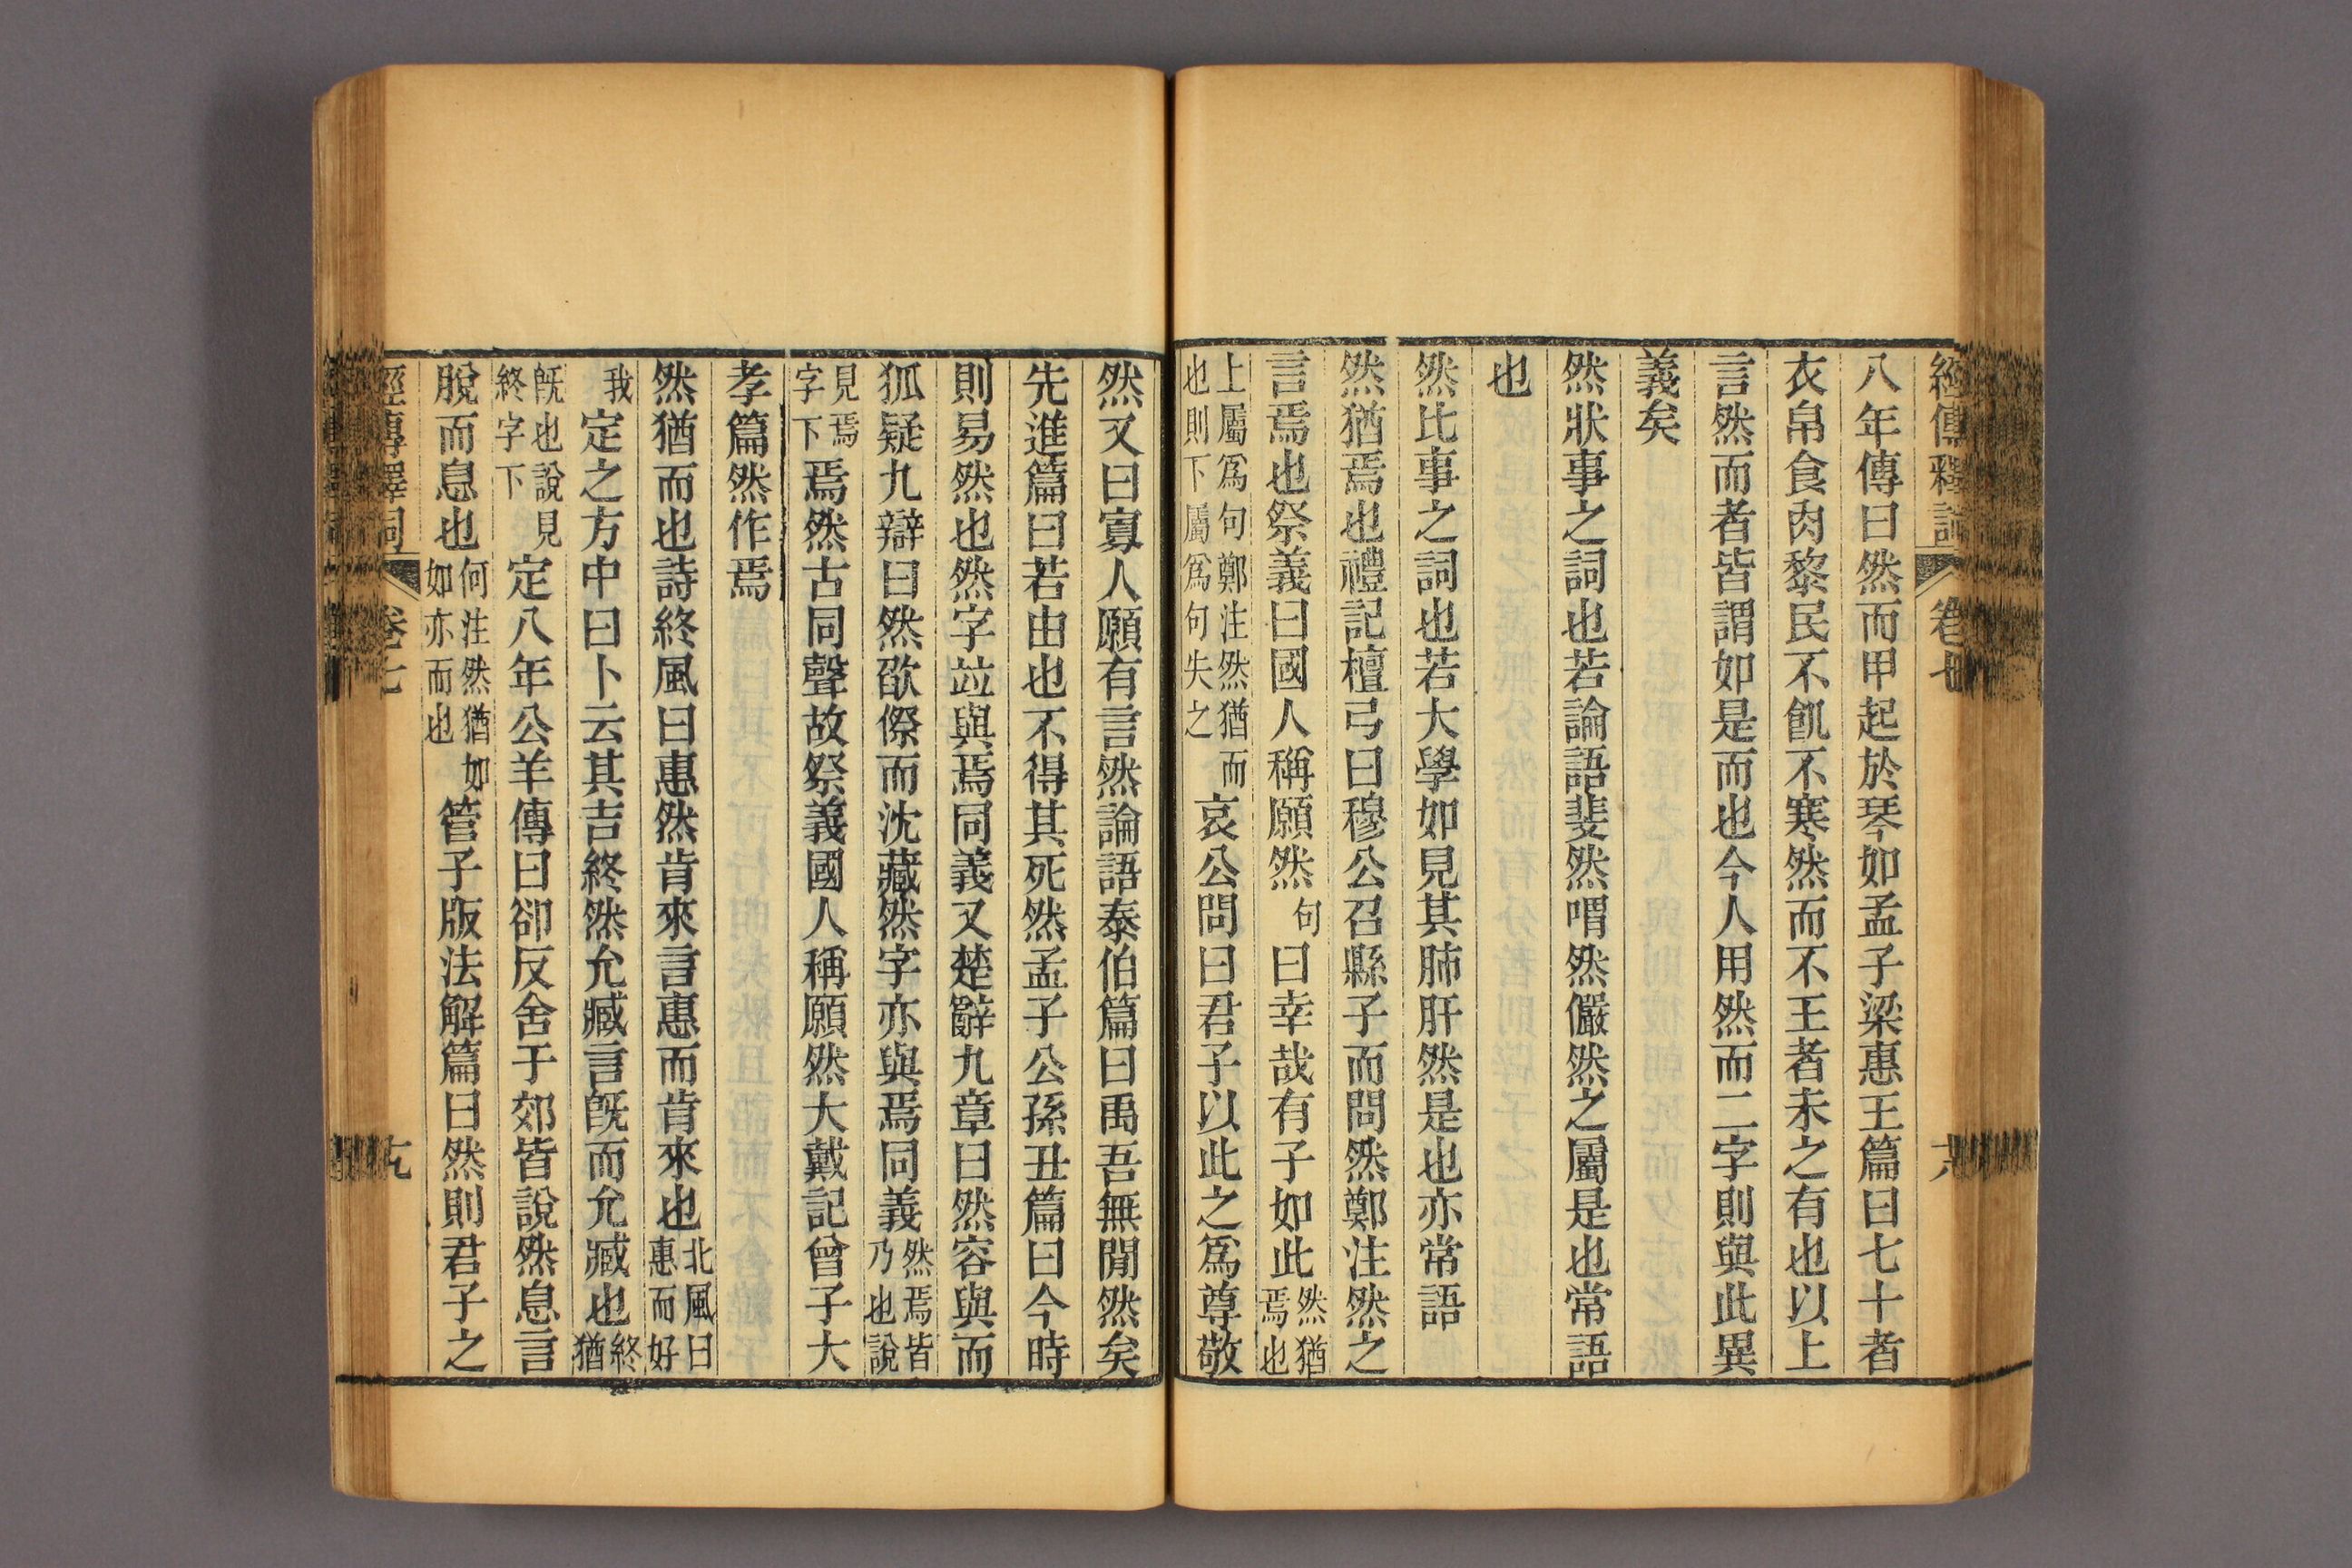 經傳釋詞 卷七 六
八年傳曰然而甲起於琴如孟子梁惠王篇曰七十者
衣帛食肉黎民不飢不寒然而不王者未之有也以上
言然而者皆謂如是而也今人用然而二字則與此異
義矣
然狀事之詞也若論語斐然喟然儼然之屬是也常語
也
然比事之詞也若大學如見其肺肝然是也亦常語
然猶焉也禮記檀弓曰穆公召縣子而問然鄭注然之
言焉也祭義曰國人稱願然句曰幸哉有子如此然猶焉也
上屬爲句鄭注然猶而也則下屬爲句失之哀公問曰君子以此之爲尊敬
然又曰寡人願有言然論語泰伯篇曰禹吾無閒然矣
先進篇曰若由也不得其死然孟子公孫丑篇曰今時
則易然也然字竝與焉同義又楚辭九章曰然容與而
狐疑九辯曰然欿傺而沈藏然字亦與焉同義然焉皆乃也說
見焉字下焉然古同聲故祭義國人稱願然大戴記曾子大
孝篇然作焉
然猶而也詩終風曰惠然肯來言惠而肯來也北風曰惠而好
我定之方中曰卜云其吉終然允臧言旣而允臧也終猶
旣也說見終字下定八年公羊傳曰卻反舍于郊皆說然息言
脫而息也何注然猶如如亦而也管子版法解篇曰然則君子之
經傳釋詞 卷七